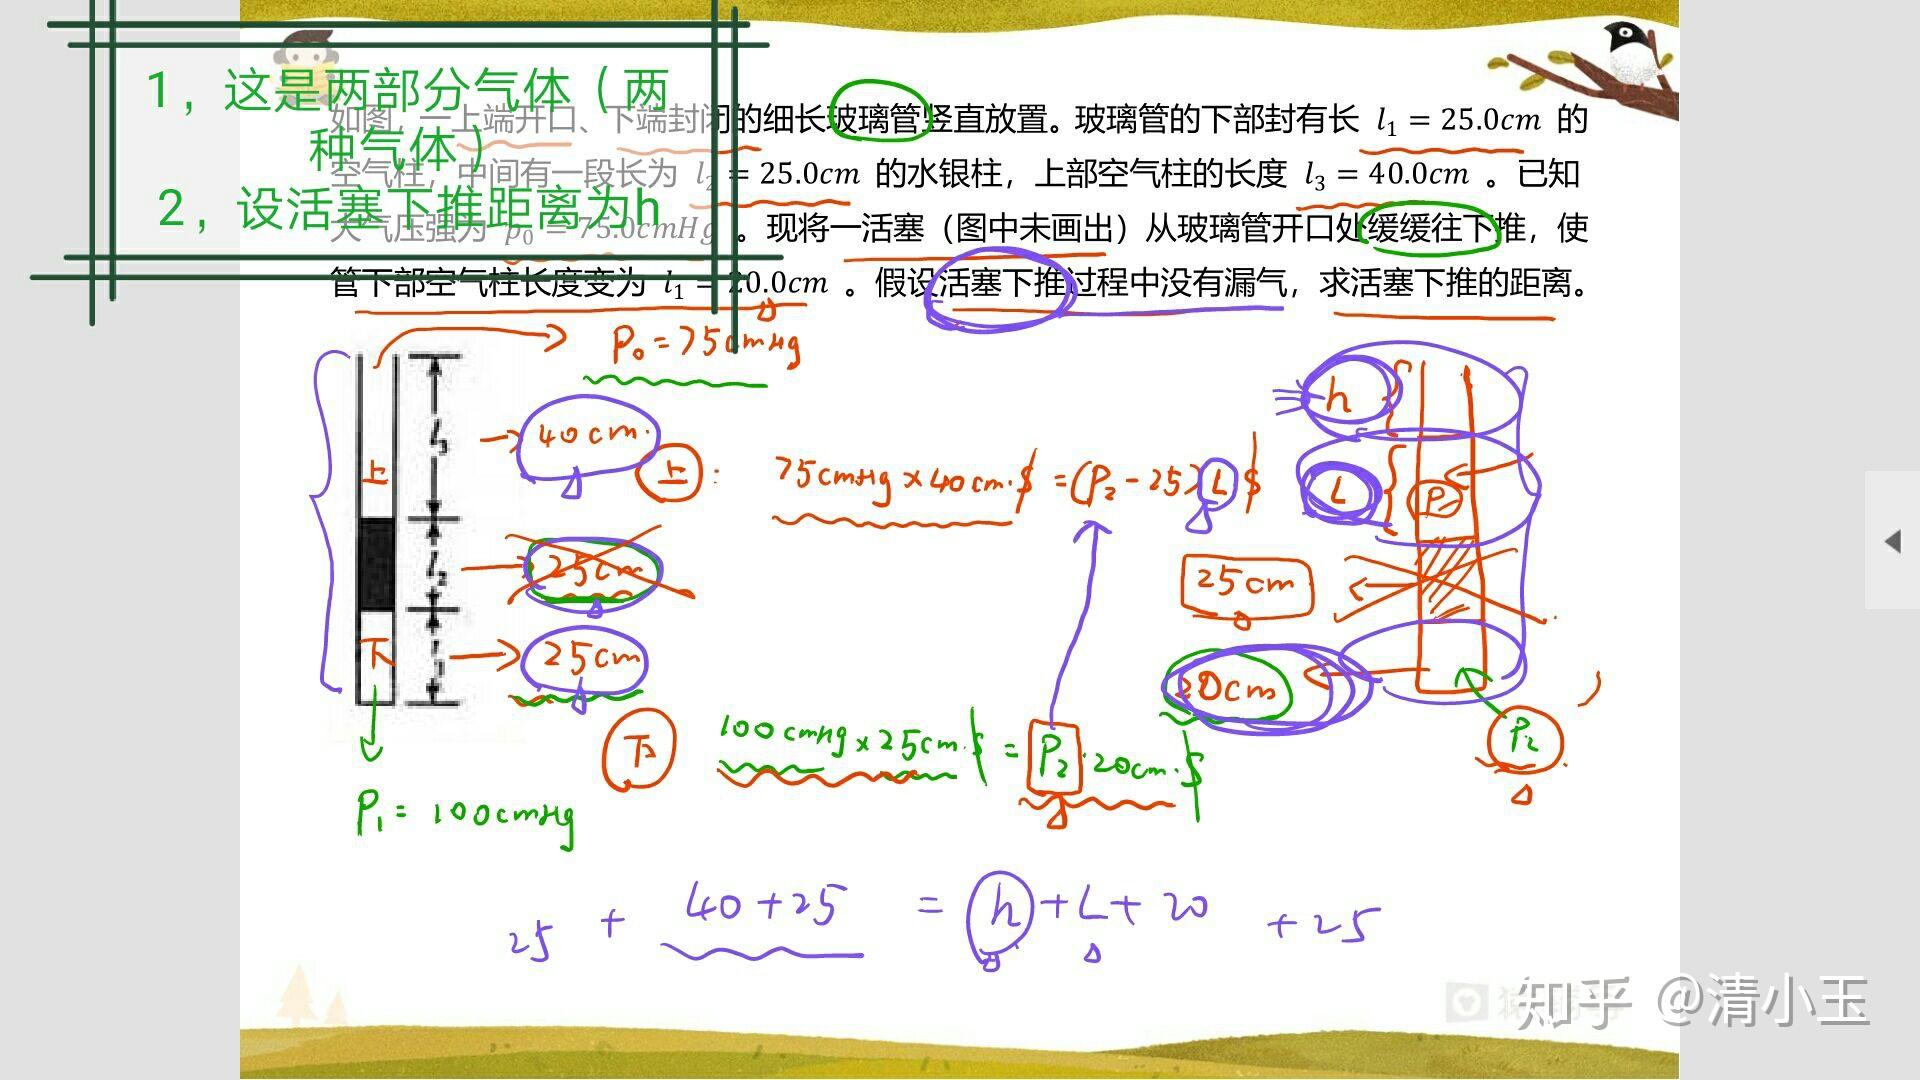 1，这是两部分气体（两
种气体）
2，设活塞下推距离为h
如图，一上端开口、下端封闭的细长玻璃管竖直放置。玻璃管的下部封有长 l₁ = 25.0cm 的
空气柱，中间有一段长为 l₂ = 25.0cm 的水银柱，上部空气柱的长度 l₃ = 40.0cm 。已知
大气压强为 p₀ = 75.0cmHg 。现将一活塞（图中未画出）从玻璃管开口处缓缓往下推，使
管下部空气柱长度变为 l₁ = 20.0cm 。假设活塞下推过程中没有漏气，求活塞下推的距离。
P₀ = 75cmHg
h
l₃
40cm.
上
上 : 75cmHg × 40cm·S = (P₂ - 25) L S
L
P
l₂
25cm
25cm
下
25cm
20cm
P₂
下 100cmHg × 25cm·S = P₂ · 20cm·S
P₁ = 100cmHg
25 + 40 + 25 = h + L + 20 + 25
知乎 @清小玉